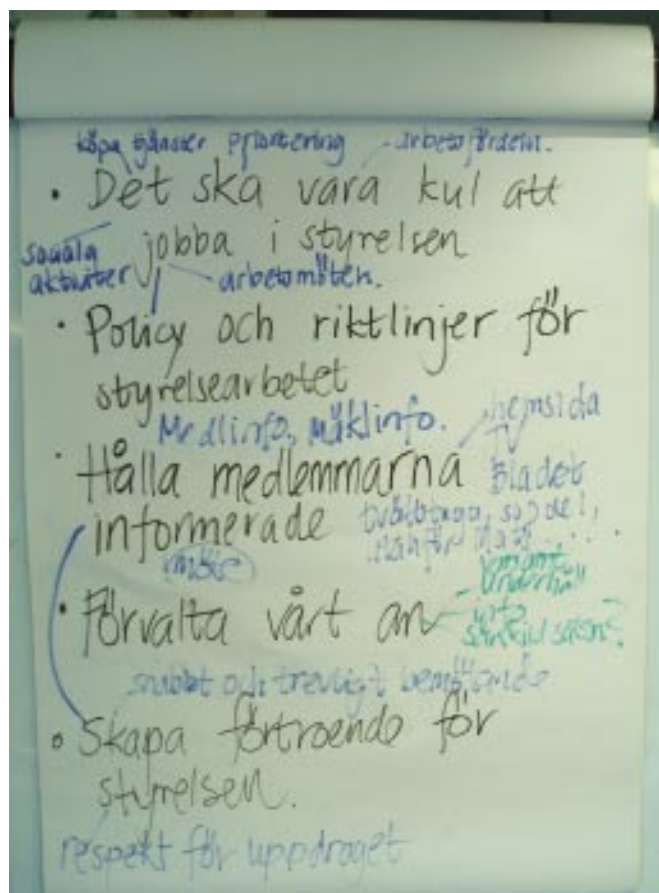 köpa tjänster prioritering arbetsfördeln.
• Det ska vara kul att
jobba i styrelsen
sociala
aktiviter
arbetsmöten.
• Policy och riktlinjer för
styrelsearbetet
Medlinfo, mäklinfo.
hemsida
TV
• Hålla medlemmarna
Bladet
informerade
möte
• Förvalta vårt an
underhåll
info
snabbt och trevligt bemötande
• Skapa förtroende för
styrelsen.
respekt för uppdraget